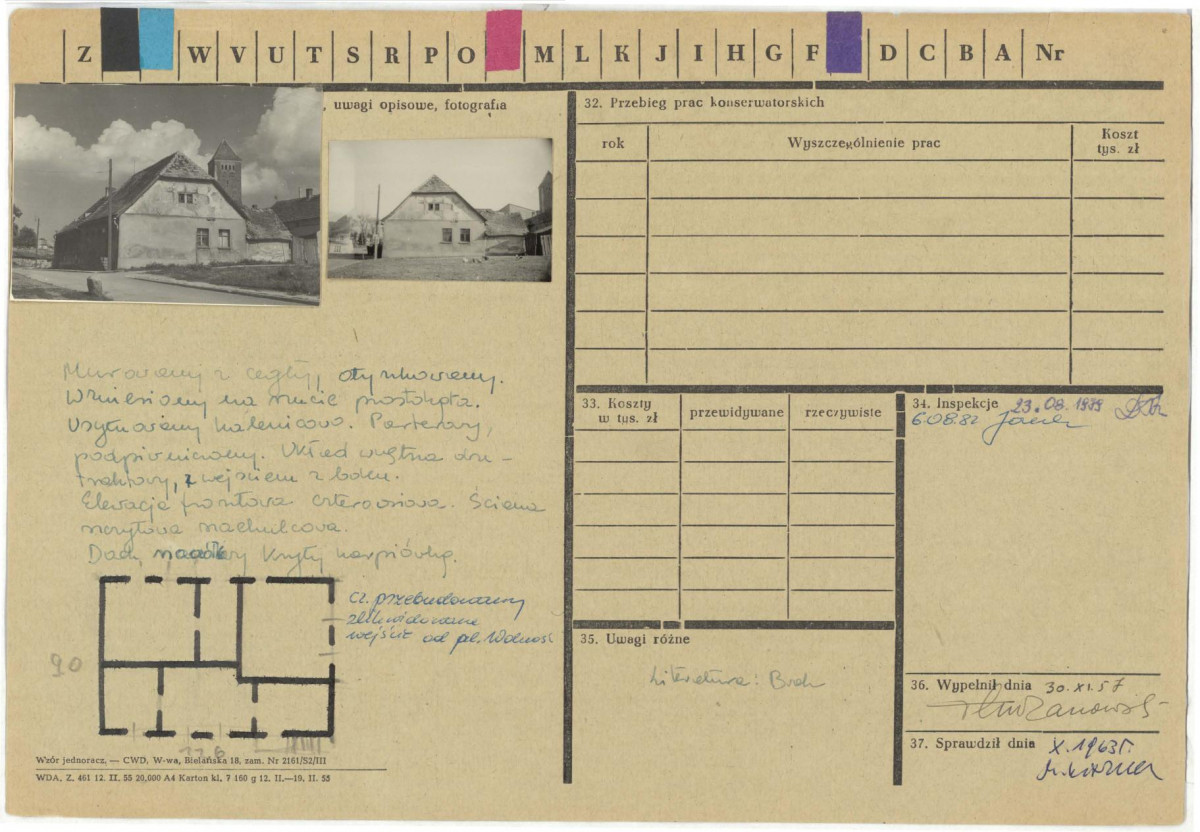 Z W V U T S R P O M L K J I H G F D C B A Nr
, uwagi opisowe, fotografia
Murowany z cegły, otynkowany.
Wzniesiony na rzucie prostokąta.
Usytuowany kalenicowo. Parterowy,
podpiwniczony. Układ wnętrza dwu-
traktowy, z wejściem z boku.
Elewacja frontowa czteroosiowa. Ściana
szczytowa nachulcowa.
Dach kryty karpiówką.
cz. przebudowany
zlikwidowane
wejście od pl. Wolnośc
90
Wzór jednoracz. — CWD, W-wa, Bielańska 18, zam. Nr 2161/S2/III
WDA, Z. 461 12. II. 55 20,000 A4 Karton kl. 7 160 g 12. II.—19. II. 55
32. Przebieg prac konserwatorskich
rok Wyszczególnienie prac Koszt
tys. zł
33. Koszty
w tys. zł przewidywane rzeczywiste
34. Inspekcje 23.08.1979
6.08.82
35. Uwagi różne
Literatura: Brak
36. Wypełnił dnia 30.XI.57
37. Sprawdził dnia X.1963 r.